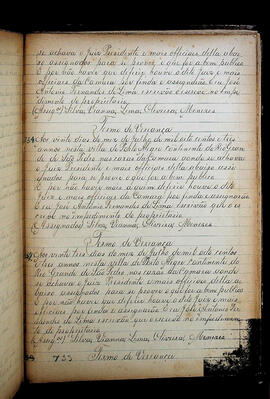 se achava o Juiz Presidente e mais officiais della abai
xo assignados para se prover o que for a bem publico
E por não haver que deferir houve o dito Juiz e mais
officiaes da Camara por finda e assignarão Eu José
Antonio Fernandes de Lima escrivão o escrevi no impe
dimento do proprietario
Silva, Vianna, Lima, Oliveira, Menezes
Termo de Vereança
Aos vinte dias do mez de Julho de mil oito centos e tres
annos nesta villa de Porto Alegre continente do Rio Grande
de São Pedro nas casas da Camara aonde se achava
o Juiz Presidente e mais officiaes della abaixo assi
gnados para se prover o que for a bem publico
E por não haver mais a quem deferir houve o dito
Juiz e mais officiaes da Camara por finda e assignarão
Eu José Antonio Fernandes de Lima escrivão que o es
crevi no impedimento do proprietario
Assignados Silva, Vianna, Lima, Oliveira, Menezes
Termo de Vereança
Aos vinte tres dias do mez de Julho de mil oito centos
e tres annos nesta villa de Porto Alegre Continente do
Rio Grande de São Pedro nas casas da Camara aonde
se achava o Juiz Presidente e mais officiaes della a
baixo assignados para se prover o que for a bem publico
E por não haver que deferir houve o dito Juiz e mais
officiaes por finda e assignarão Eu José Antonio Fer
nandes de Lima escrivão que escrevi no impedimen
to do proprietario
Silva, Vianna, Lima, Oliveira, Menezes
733 Termo de Vereança